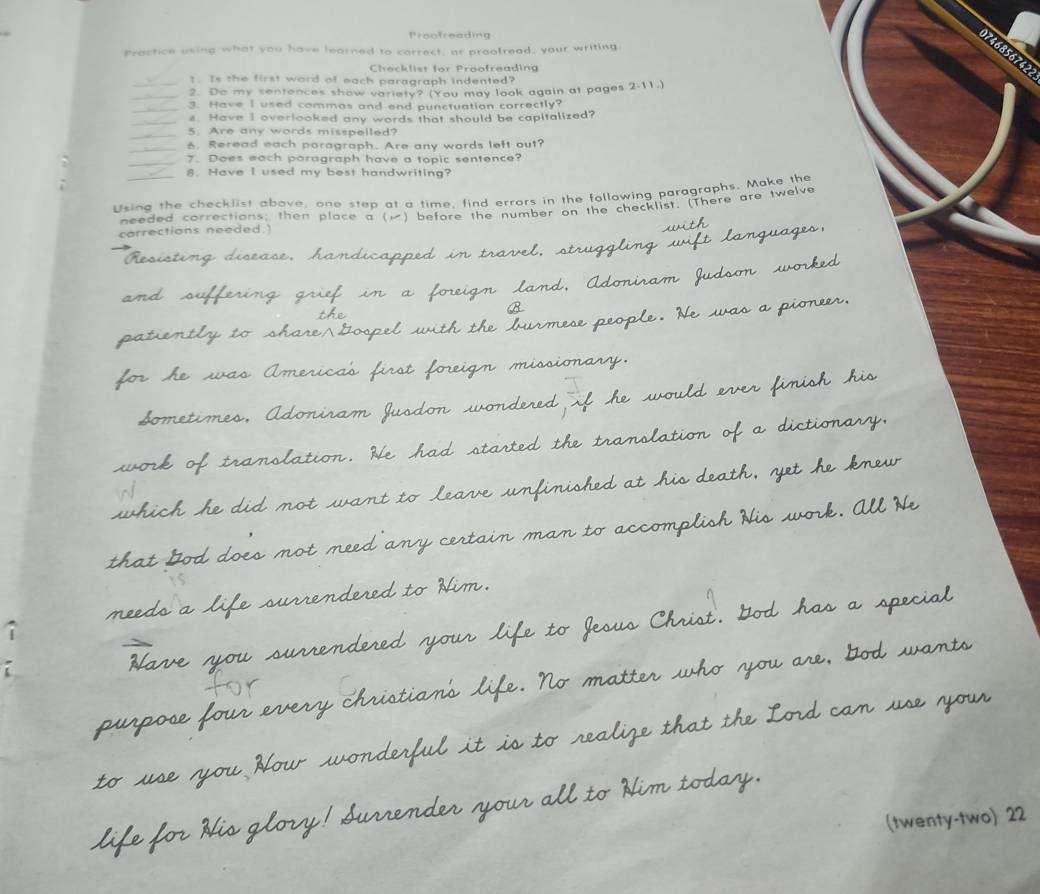 Proofreading
Practice using what you have learned to correct, or proofread, your writing.
Checklist for Proofreading
1. Is the first word of each paragraph indented?
2. Do my sentences show variety? (You may look again at pages 2-11.)
3. Have I used commas and end punctuation correctly?
4. Have I overlooked any words that should be capitalized?
5. Are any words misspelled?
6. Reread each paragraph. Are any words left out?
7. Does each paragraph have a topic sentence?
8. Have I used my best handwriting?
Using the checklist above, one step at a time, find errors in the following paragraphs. Make the
needed corrections; then place a (✓) before the number on the checklist. (There are twelve
corrections needed.)
with
Resisting disease, handicapped in travel, struggling wift languages,
and suffering grief in a foreign land, Adoniram Judson worked
the B
patiently to share ^ Gospel with the burmese people. He was a pioneer,
for he was America's first foreign missionary.
I
Sometimes, Adoniram Jusdon wondered, if he would ever finish his
work of translation. He had started the translation of a dictionary,
W
which he did not want to leave unfinished at his death, yet he knew
that God does not need any certain man to accomplish His work. All He
is
needs a life surrendered to Him.
?
Have you surrendered your life to Jesus Christ. God has a special
for C
purpose four every christian's life. No matter who you are, God wants
to use you. How wonderful it is to realize that the Lord can use your
life for His glory! Surrender your all to Him today.
(twenty-two) 22